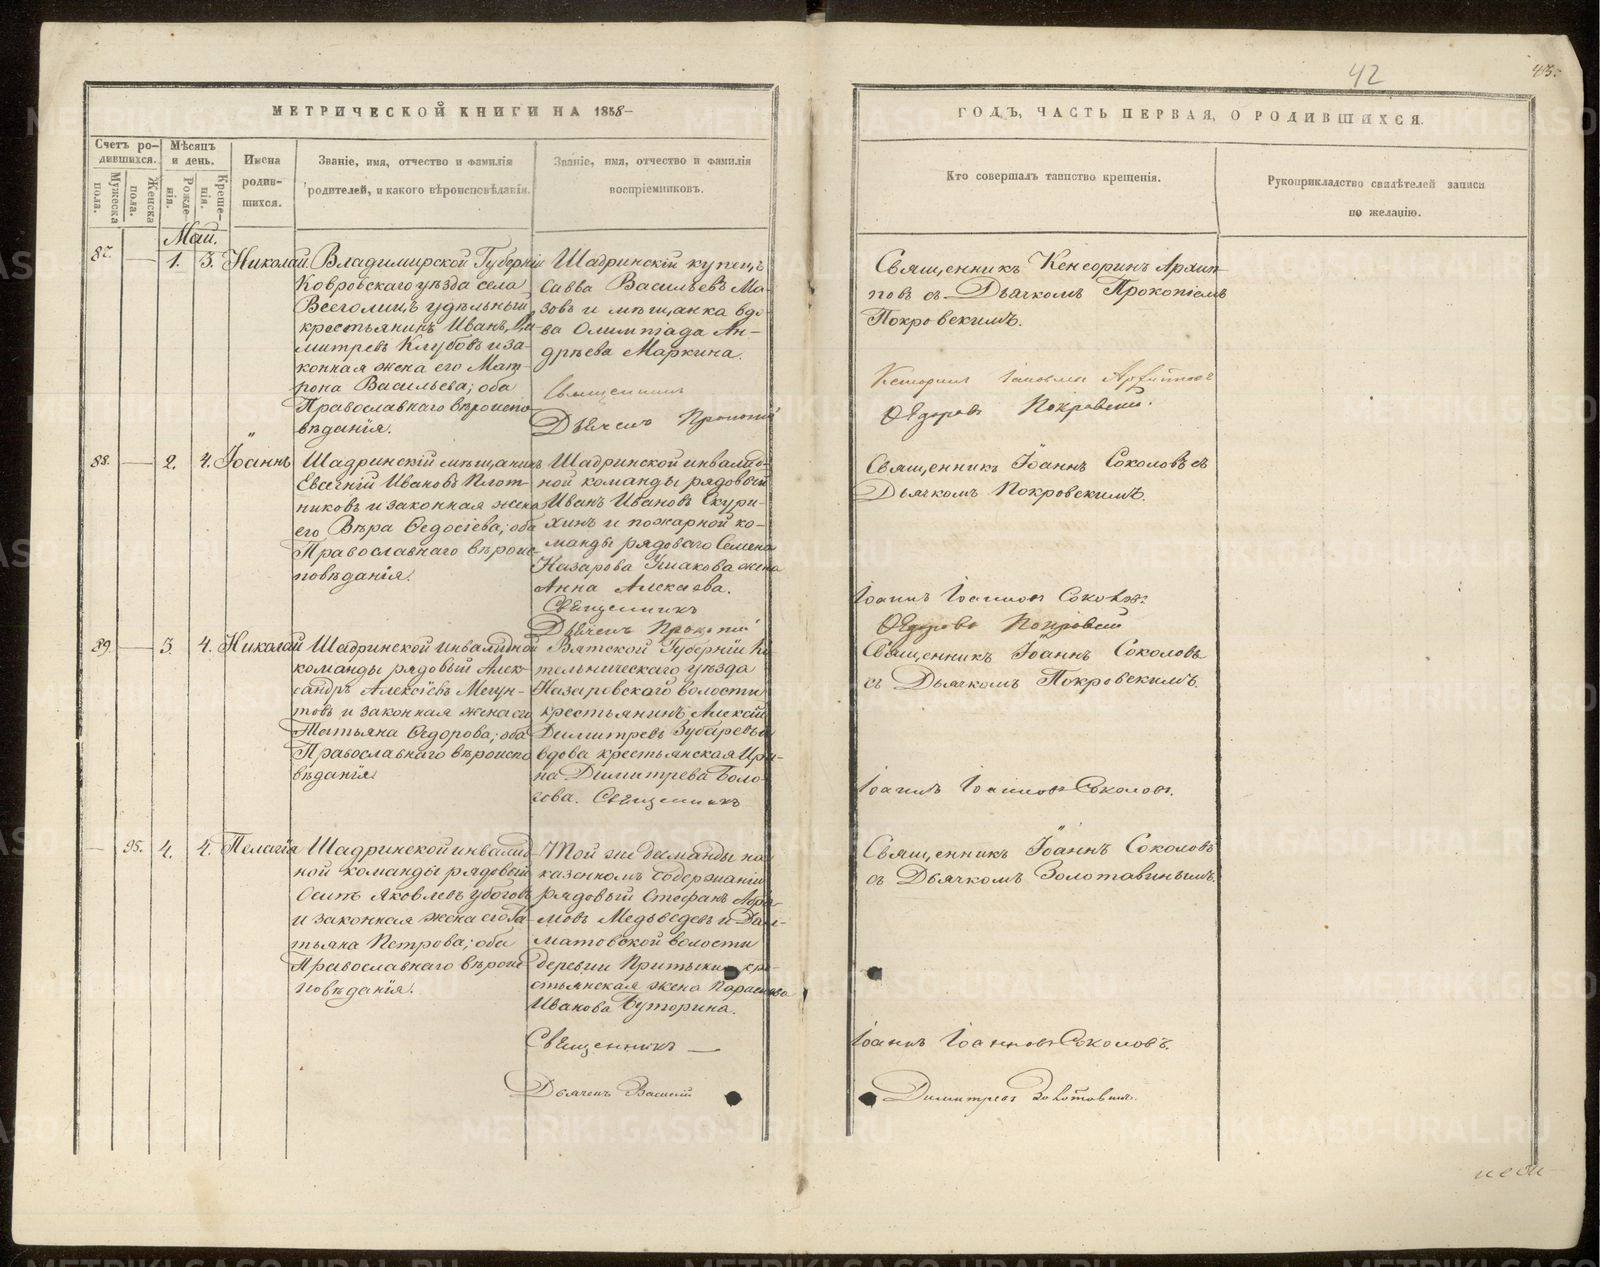 42
43.
МЕТРИЧЕСКОЙ КНИГИ НА 1858
ГОДЪ, ЧАСТЬ ПЕРВАЯ, О РОДИВШИХСЯ.
Счетъ родившихся.
Мужеска пола.
Женска пола.
Мѣсяцъ и день.
Рожденія.
Крещенія.
Имена родившихся.
Званіе, имя, отчество и фамилія
родителей, и какого вѣроисповѣданія.
Званіе, имя, отчество и фамилія
воспріемниковъ.
Кто совершалъ таинство крещенія.
Рукоприкладство свидѣтелей записи
по желанію.
Май.
87. — 1. 3. Николай.
Владимирской Губерніи
Ковровскаго уѣзда села
Всеголицъ удѣльный
крестьянинъ Иванъ Ди-
митревъ Клубовъ и за-
конная жена его Мат-
рона Васильева; оба
Православнаго вѣроиспо-
вѣданія.
Шадринскій купецъ
Савва Васильевъ Ма-
зовъ и мѣщанка вдо-
ва Олимпіада Ан-
дрѣева Маркина.
Священникъ
Дьячекъ Прокопій
Священникъ Кенсоринъ Архип-
повъ съ Дьячкомъ Прокопіемъ
Покровскимъ.
Ѳедоровъ Покровскій.
88. — 2. 4. Іоаннъ
Шадринскій мѣщанинъ
Евсегній Ивановъ Плот-
никовъ и законная жена
его Вѣра Ѳедосіева; оба
Православнаго вѣроис-
повѣданія.
Шадринской инвалид-
ной команды рядовый
Иванъ Ивановъ Скури-
хинъ и пожарной ко-
манды рядоваго Семена
Назарова Ушакова жена
Анна Алексіева.
Священникъ
Дьячекъ Прокопій
Священникъ Іоаннъ Соколовъ съ
Дьячкомъ Покровскимъ.
Іоаннъ Іоанновъ Соколовъ.
Ѳедоровъ Покровскій
89. — 3. 4. Николай
Шадринской инвалидной
команды рядовый Алек-
сандръ Алексіевъ Мегун-
товъ и законная жена его
Татьяна Ѳедорова; оба
Православнаго вѣроиспо-
вѣданія
Вятской Губерніи Ко-
тельническаго уѣзда
Назаровскаго волости
крестьянинъ Алексій
Димитревъ Зубаревъ и
вдова крестьянская Ири-
на Димитрева Боло-
сова. Священникъ
Священникъ Іоаннъ Соколовъ
съ Дьячкомъ Покровскимъ.
Іоаннъ Іоанновъ Соколовъ.
— 95. 4. 4. Пелагія
Шадринской инвалид-
ной команды рядовый
Осипъ Яковлевъ Убоговъ
и законная жена его Та-
тьяна Петрова; оба
Православнаго вѣроис-
повѣданія.
Той же команды на
казенномъ содержаніи
рядовый Стефанъ Абра-
мовъ Медьведевъ и Дал-
матовской волости
деревни Притыки кре-
стьянская жена Параскева
Иванова Буторина.
Священникъ —
Дьячекъ Василій
Священникъ Іоаннъ Соколовъ
съ Дьячкомъ Золотавинымъ.
Іоаннъ Іоанновъ Соколовъ.
Димитревъ Золотавинъ.
METRIKI.GASO-URAL.RU